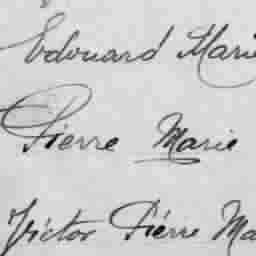 Edouard Marie
Pierre Marie
Victor Piérre Ma